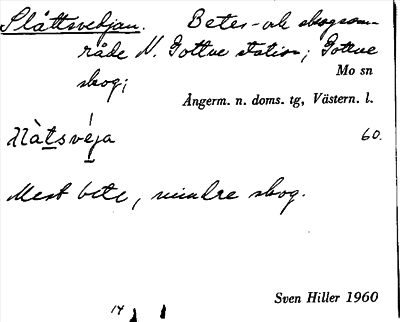 Slåttsvedjan. Betes- och skogsom-
råde N. Gottne station; Gottne
skog;
Mo sn
Ångerm. n. doms. tg, Västern. l.
60.
Mest bete, mindre skog.
Sven Hiller 1960
14